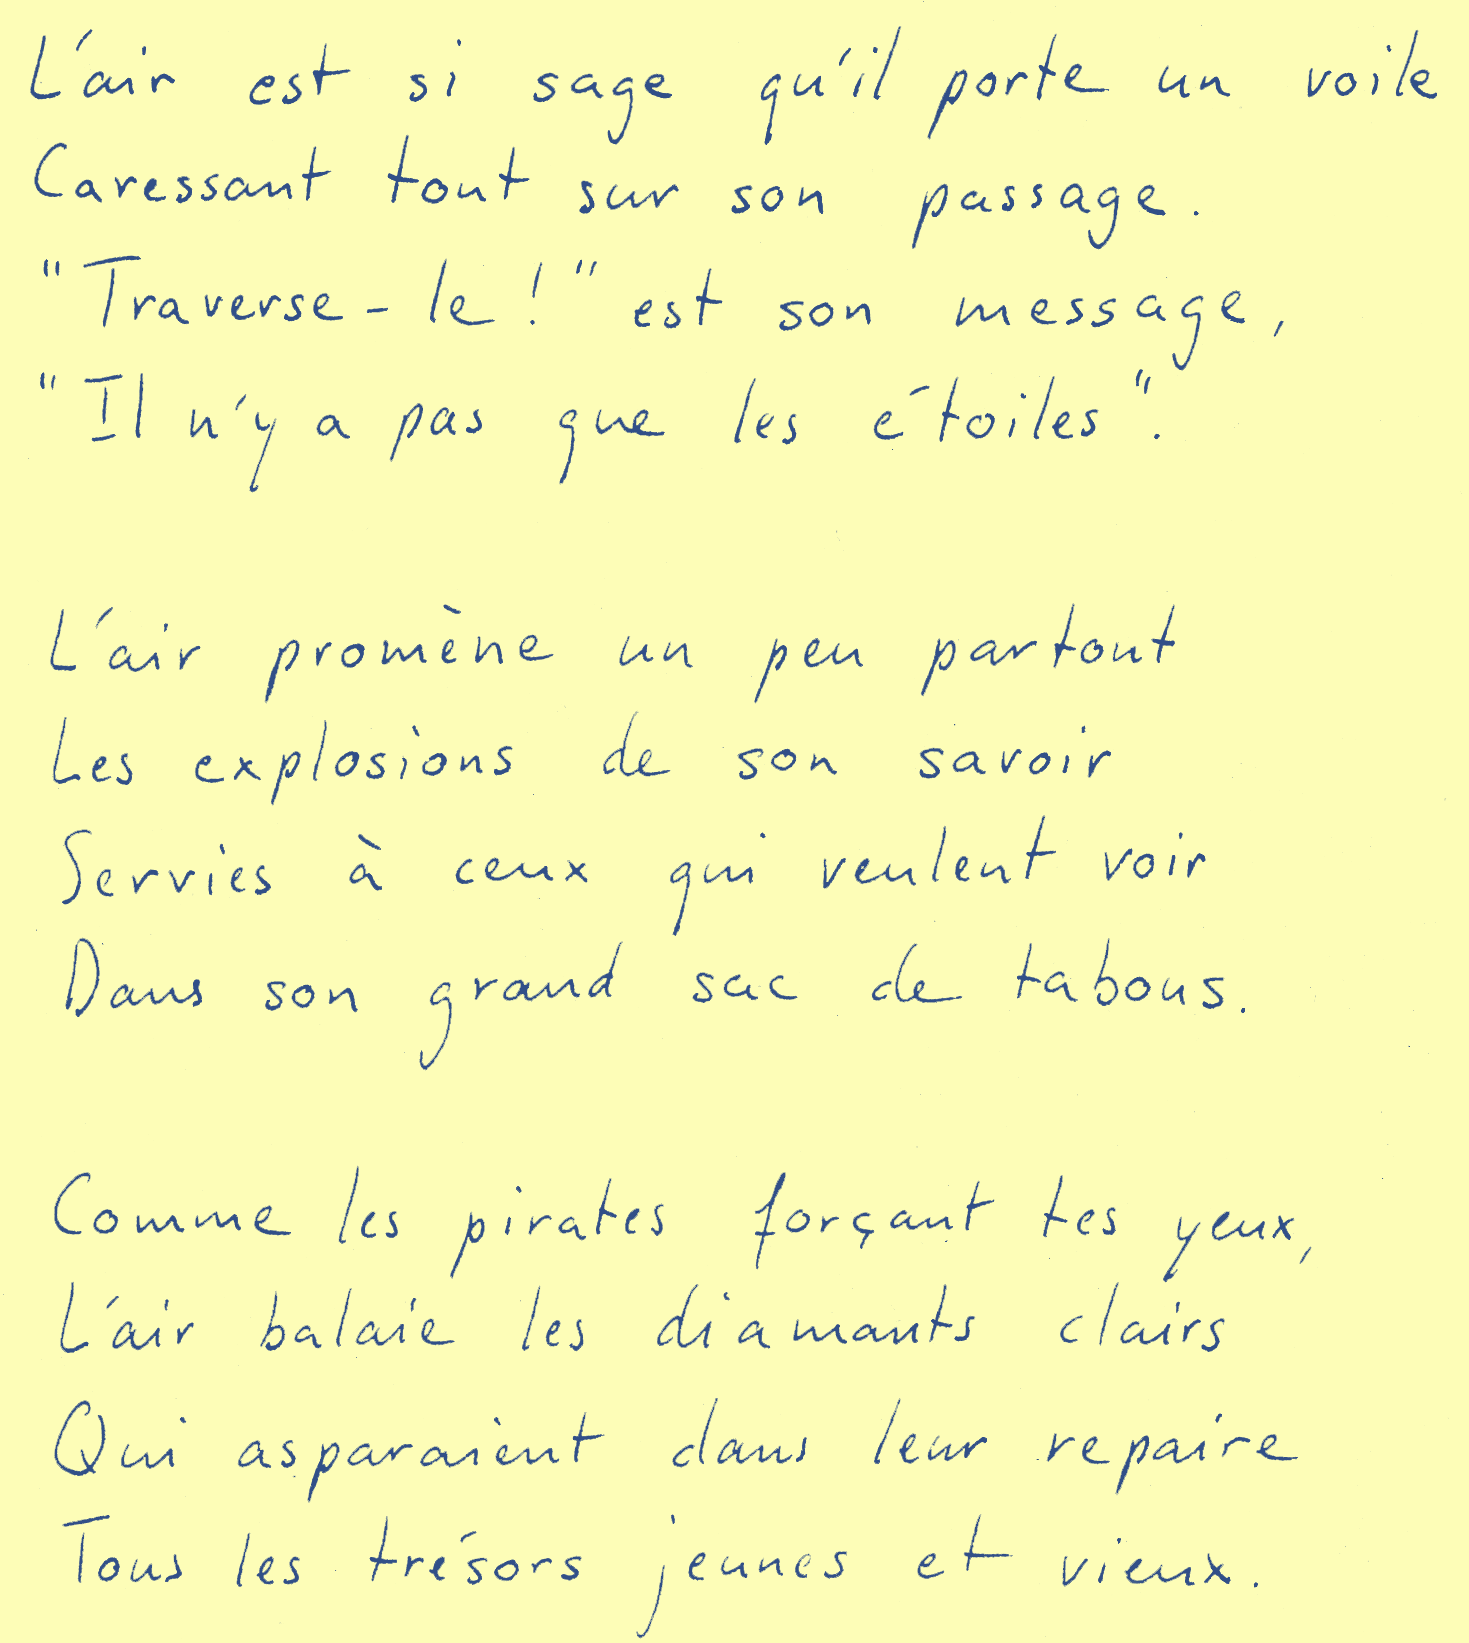 L'air est si sage qu'il porte un voile
Caressant tout sur son passage.
"Traverse-le!" est son message,
"Il n'y a pas que les étoiles".
L'air promène un peu partout
Les explosions de son savoir
Servies à ceux qui veulent voir
Dans son grand sac de tabous.
Comme les pirates forçant tes yeux,
L'air balaie les diamants clairs
Qui asparaient dans leur repaire
Tous les trésors jeunes et vieux.